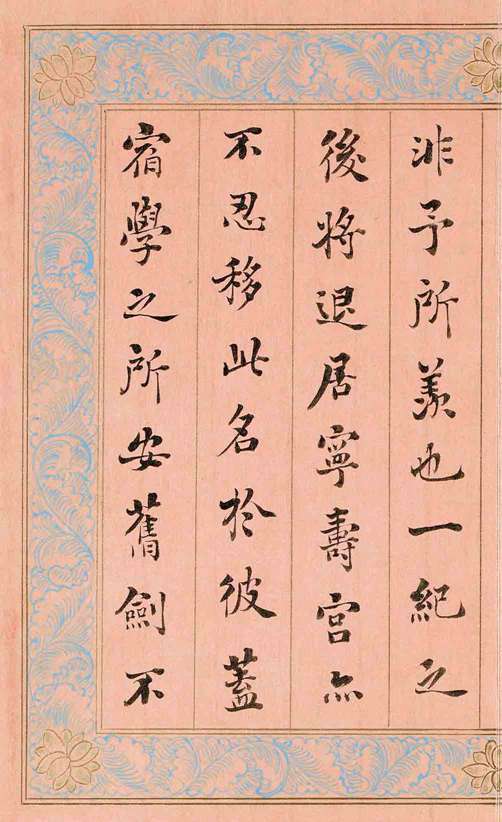 非予所羨也一紀之
後將退居寧壽宮亦
不忍移此名於彼蓋
宿學之所安舊劍不